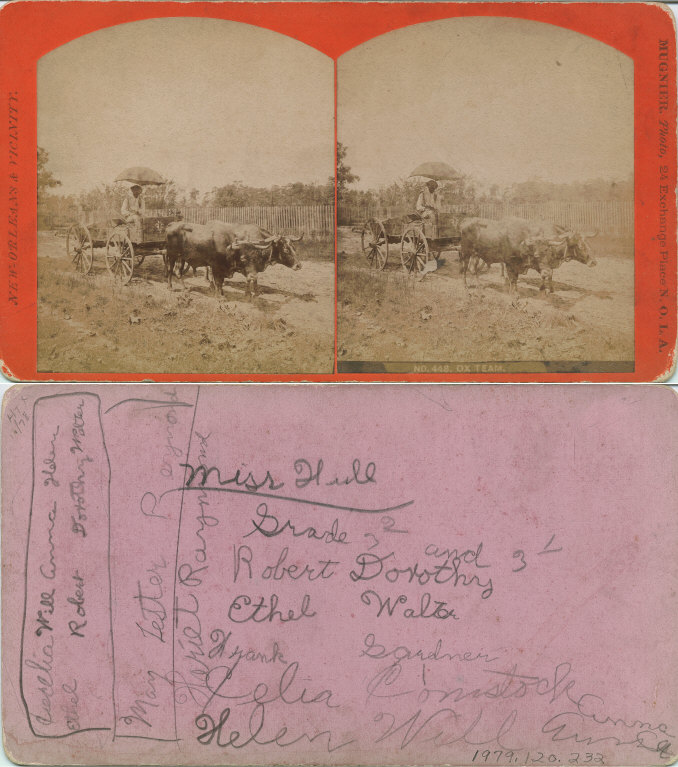 NEW ORLEANS & VICINITY.
MUGNIER, Photo, 24 Exchange Place N. O. LA.
NO. 448. OX TEAM.
Will Anna Helen
Ethel Robert Dorothy Walter
May Lester Raymond
Hariet Raymond
Miss Hull
Grade 3² and 3¹
Robert Dorothy
Ethel Walter
Frank Gardner
Celia Comstock
Helen Will Anna
1979.120.232